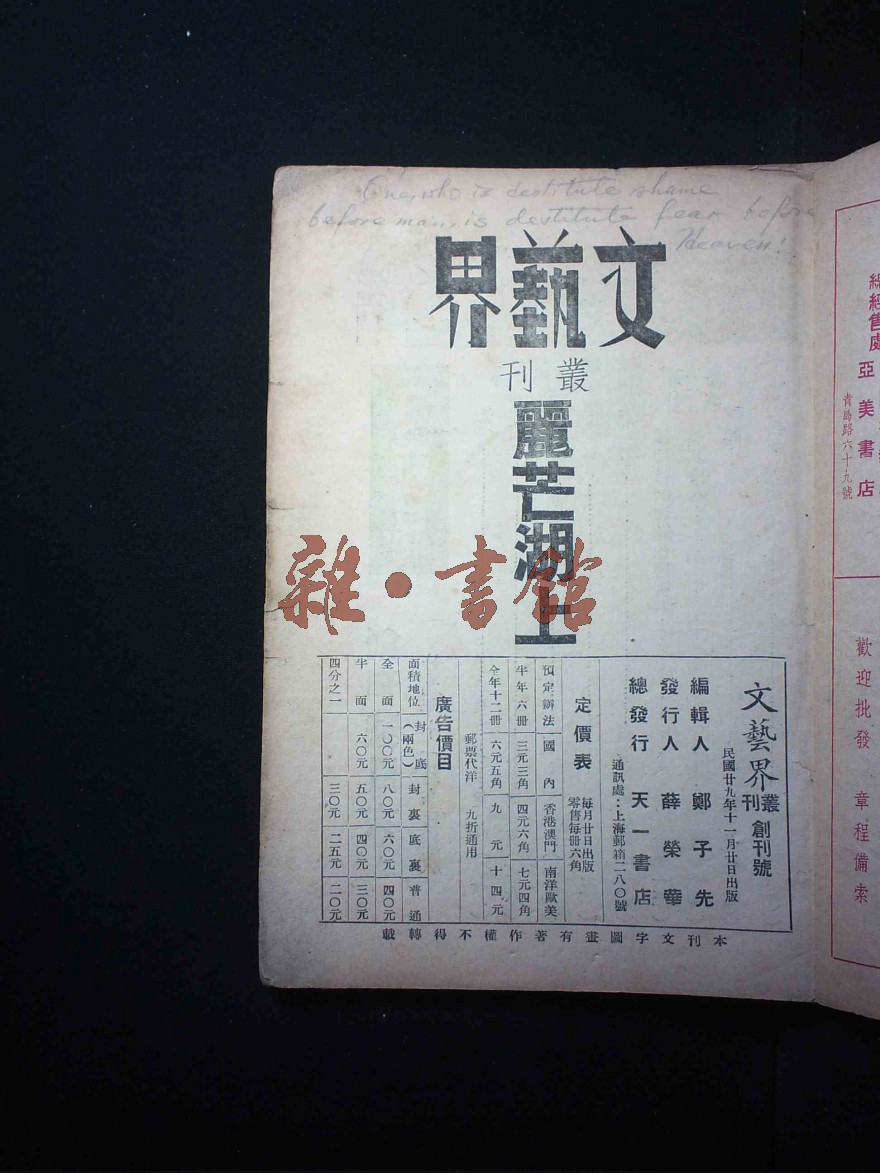 One, who is destitute shame
before man, is destitute fear before
Heaven!
文藝界
叢刊
麗芒湖上
雜·書館
文藝界叢刊 創刊號
民國廿九年十一月廿日出版
編輯人 鄭子先
發行人 薛榮華
總發行 天一書店
通訊處:上海郵箱二八〇號
定價表
每月廿日出版
零售每册六角
預定辦法 國內 香港澳門 南洋歐美
半年六册 三元三角 四元六角 七元四角
全年十二册 六元五角 九元 十四元
郵票代洋 九折通用
廣告價目
面積地位 封底(兩色) 封裏 底裏 普通
全面 一〇〇元 八〇元 六〇元 四〇元
半面 六〇元 五〇元 四〇元 三〇元
四分之一 三〇元 二五元 二〇元
本刊文字圖畫有著作權不得轉載
總經售處
亞美書店
青島路六十九號
歡迎批發 章程備索